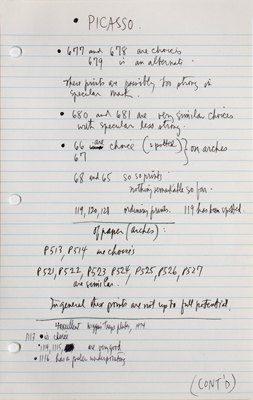 • PICASSO.
• 677 and 678 are choices
679 is an alternate.
These prints are possibly too strong in
specular mark.
• 680 and 681 are very similar choices
with specular less strong.
• 66 are choice (spotted) } on arches
67
68 and 65 so so prints
nothing remarkable so far.
119, 120, 121 ordinary prints. 119 has been spotted.
of paper (arches):
P513, P514 are choices
P521, P522, P523 P524, P525, P526, P527
are similar.
In general these prints are not up to full potential.
excellent
1117 • is choice
• 1114, 1115, are very good
• 1116 has a paler underprinting
(CONT'D)